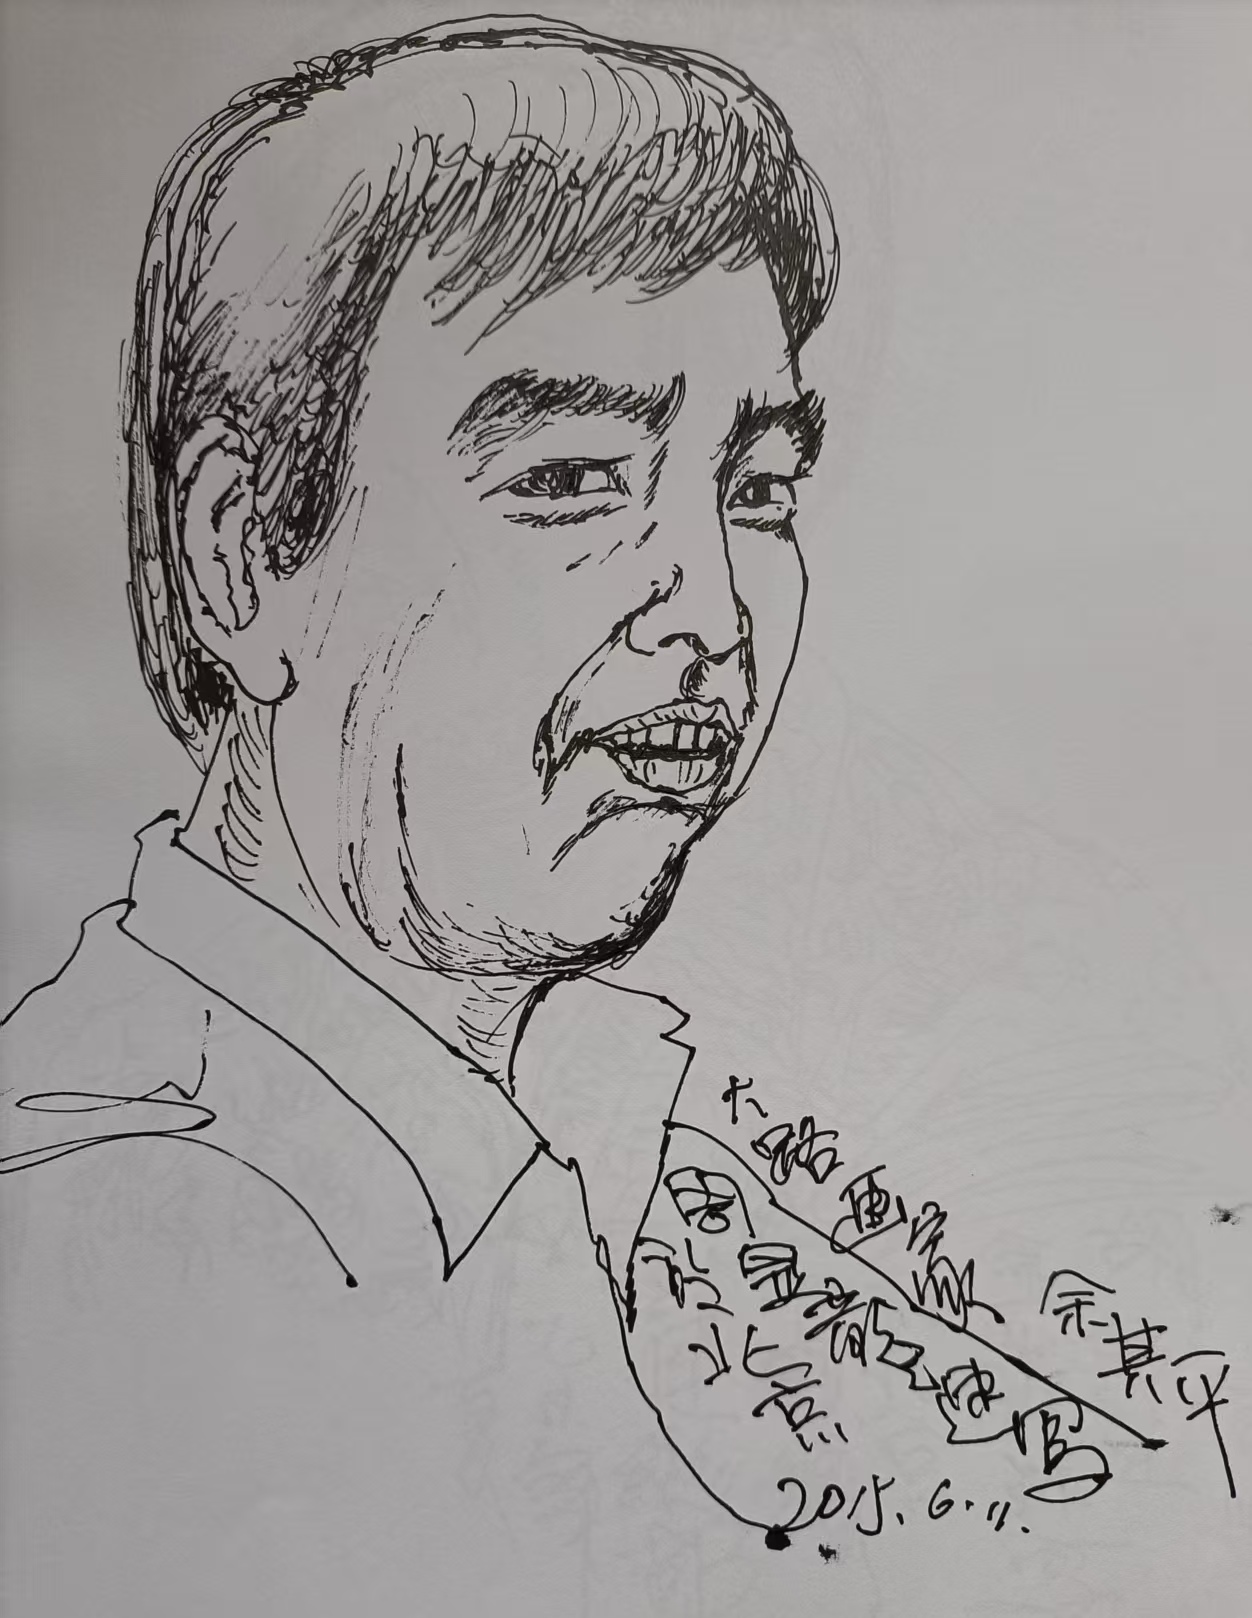 大路画家 余其平
周显彪速写
于北京
2015.6.11.